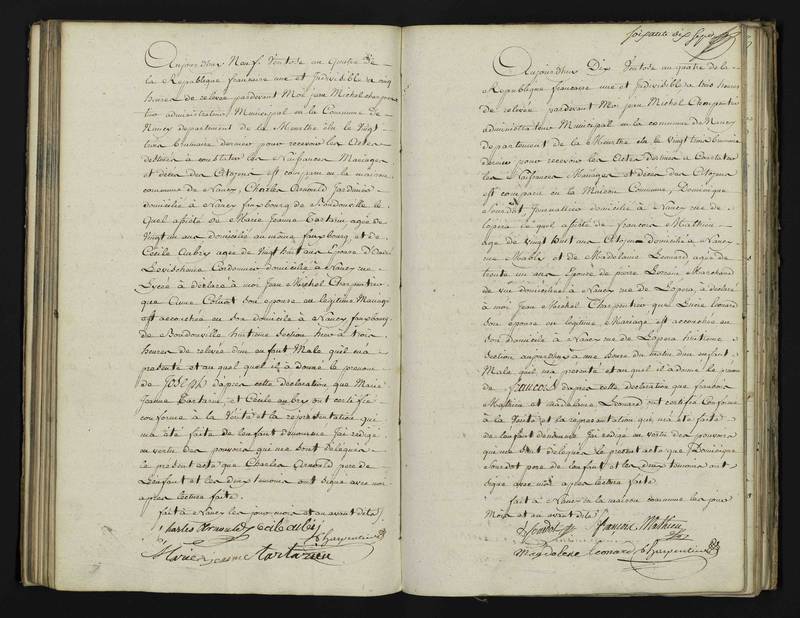 Aujourdhui Neuf Ventose an quatre de
la Republique francaise une et Indivisible a cinq
heures de relevée pardevant Moi jean Michel charpen
tier administrateur Municipal en la Commune de
Nancy departement de la Meurthe élu le Vingt
trois brumaire dernier pour recevoir les Actes
destinés à constater les Naissances Mariages
et décès des Citoyens est comparu en la maison
commune de Nancy, Charles Arnould Jardinier
domicilié à Nancy fauxbourg de Boudonville le
quel assisté de Marie Jeanne Tartarin agée de
Vingt un ans domiciliée au même fauxbourg, et de
Cécile aubry agée de Vingt huit ans Epouse
Cordonnier domicilié à Nancy rue
à déclaré à moi Jean Michel Charpentier
que Anne Colinet son epouse en légitime Mariage
est accouchée en son domicile à Nancy fauxbourg
de Boudonville huitieme Section hier à trois
heures de relevée d'un enfant Male quil m'a
présenté et au quel il a donné le prenom
de JOSEPH d'après cette déclaration que Marie
Jeanne Tartarin, et Cécile aubry ont certifié
conforme à la Vérité et la représentation qui
m'a été faite de lenfant dénommé J'ai redigé
en vertu des pouvoirs qui me sont délégués
le présent acte que Charles Arnould pere de
Lenfant et les deux témoins ont signé avec moi
après lecture faite
fait à Nancy les jour mois et an avant dits
Charles Arnould Charpentier
Marie jeanne Tartarin
soixante dix Sept
Aujourdhui Dix Ventose an quatre de la
Republique francaise une et Indivisible a trois heures
de relevée pardevant Moi jean Michel Charpentier
administrateur Municipal en la commune de Nancy
departement de la Meurthe élu le vingt trois brumaire
dernier pour recevoir les Actes destinés a Constater
les Naissances Mariages et décès des Citoyens
est comparu en la Maison Commune, Dominique
Sourdot, Journalier domicilié à Nancy rue de
lopera le quel assisté de francois Mathieu
agé de vingt huit ans Citoyen domicilié a Nancy
rue Mably et de Madelaine Leonard agée de
trente un ans Epouse de pierre Lorrain Marchand
de vin domiciliée à Nancy rue de Lopera, à déclaré
à moi Jean Michel Charpentier que Lucie leonard
son epouse en legitime Mariage est accouchée en
son domicile a Nancy rue de Lopera huitieme
Section aujourdhui a une heure du matin d'un enfant
Male quil m'a présenté et au quel il a donné le prenom
de FRANCOIS d'apres cette déclaration que francois
Mathieu et madelaine Leonard ont certifié Conforme
à la Vérité et la représentation qui m'a été faite
de lenfant dénommé J'ai redigé en vertu des pouvoirs
qui me sont delegués le présent acte que Dominique
Sourdot pere de lenfant et les deux témoins ont
signé avec moi après lecture faite
fait à Nancy en la maison commune les jour
Mois et an avant dits
D Sourdot françois Mathieu
Magdelene leonard Charpentier